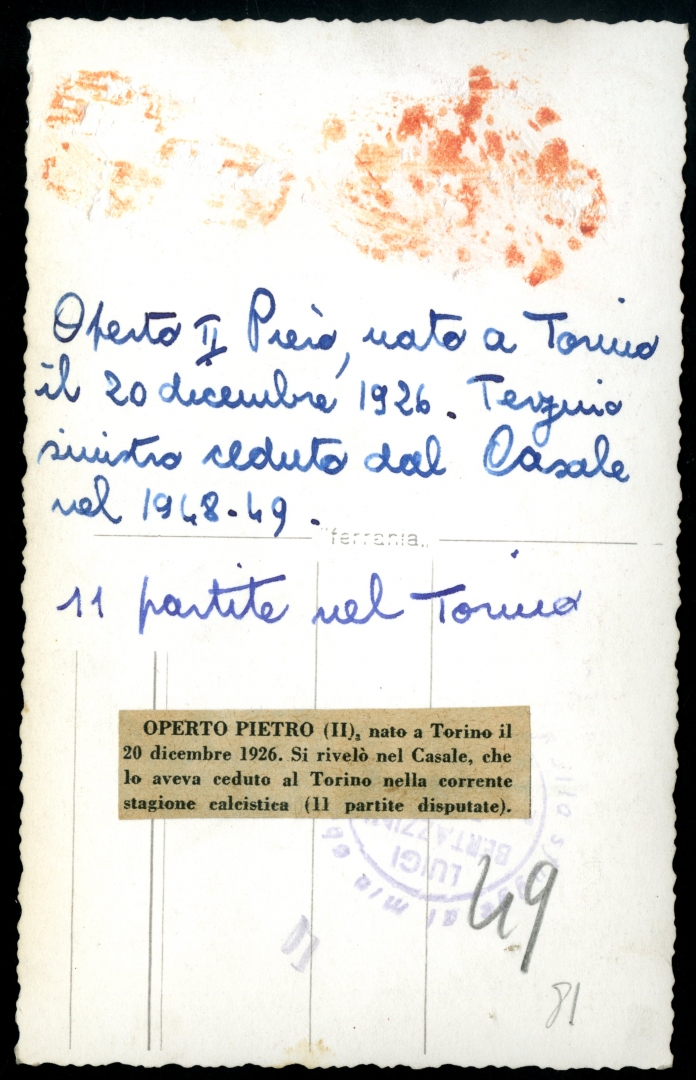 Operto II Piero, nato a Torino
il 20 dicembre 1926. Terzino
sinistro ceduto dal Casale
nel 1948-49.
"ferrania"
11 partite nel Torino
OPERTO PIETRO (II), nato a Torino il
20 dicembre 1926. Si rivelò nel Casale, che
lo aveva ceduto al Torino nella corrente
stagione calcistica (11 partite disputate).
LUIGI
BERTAZZINI
49
81